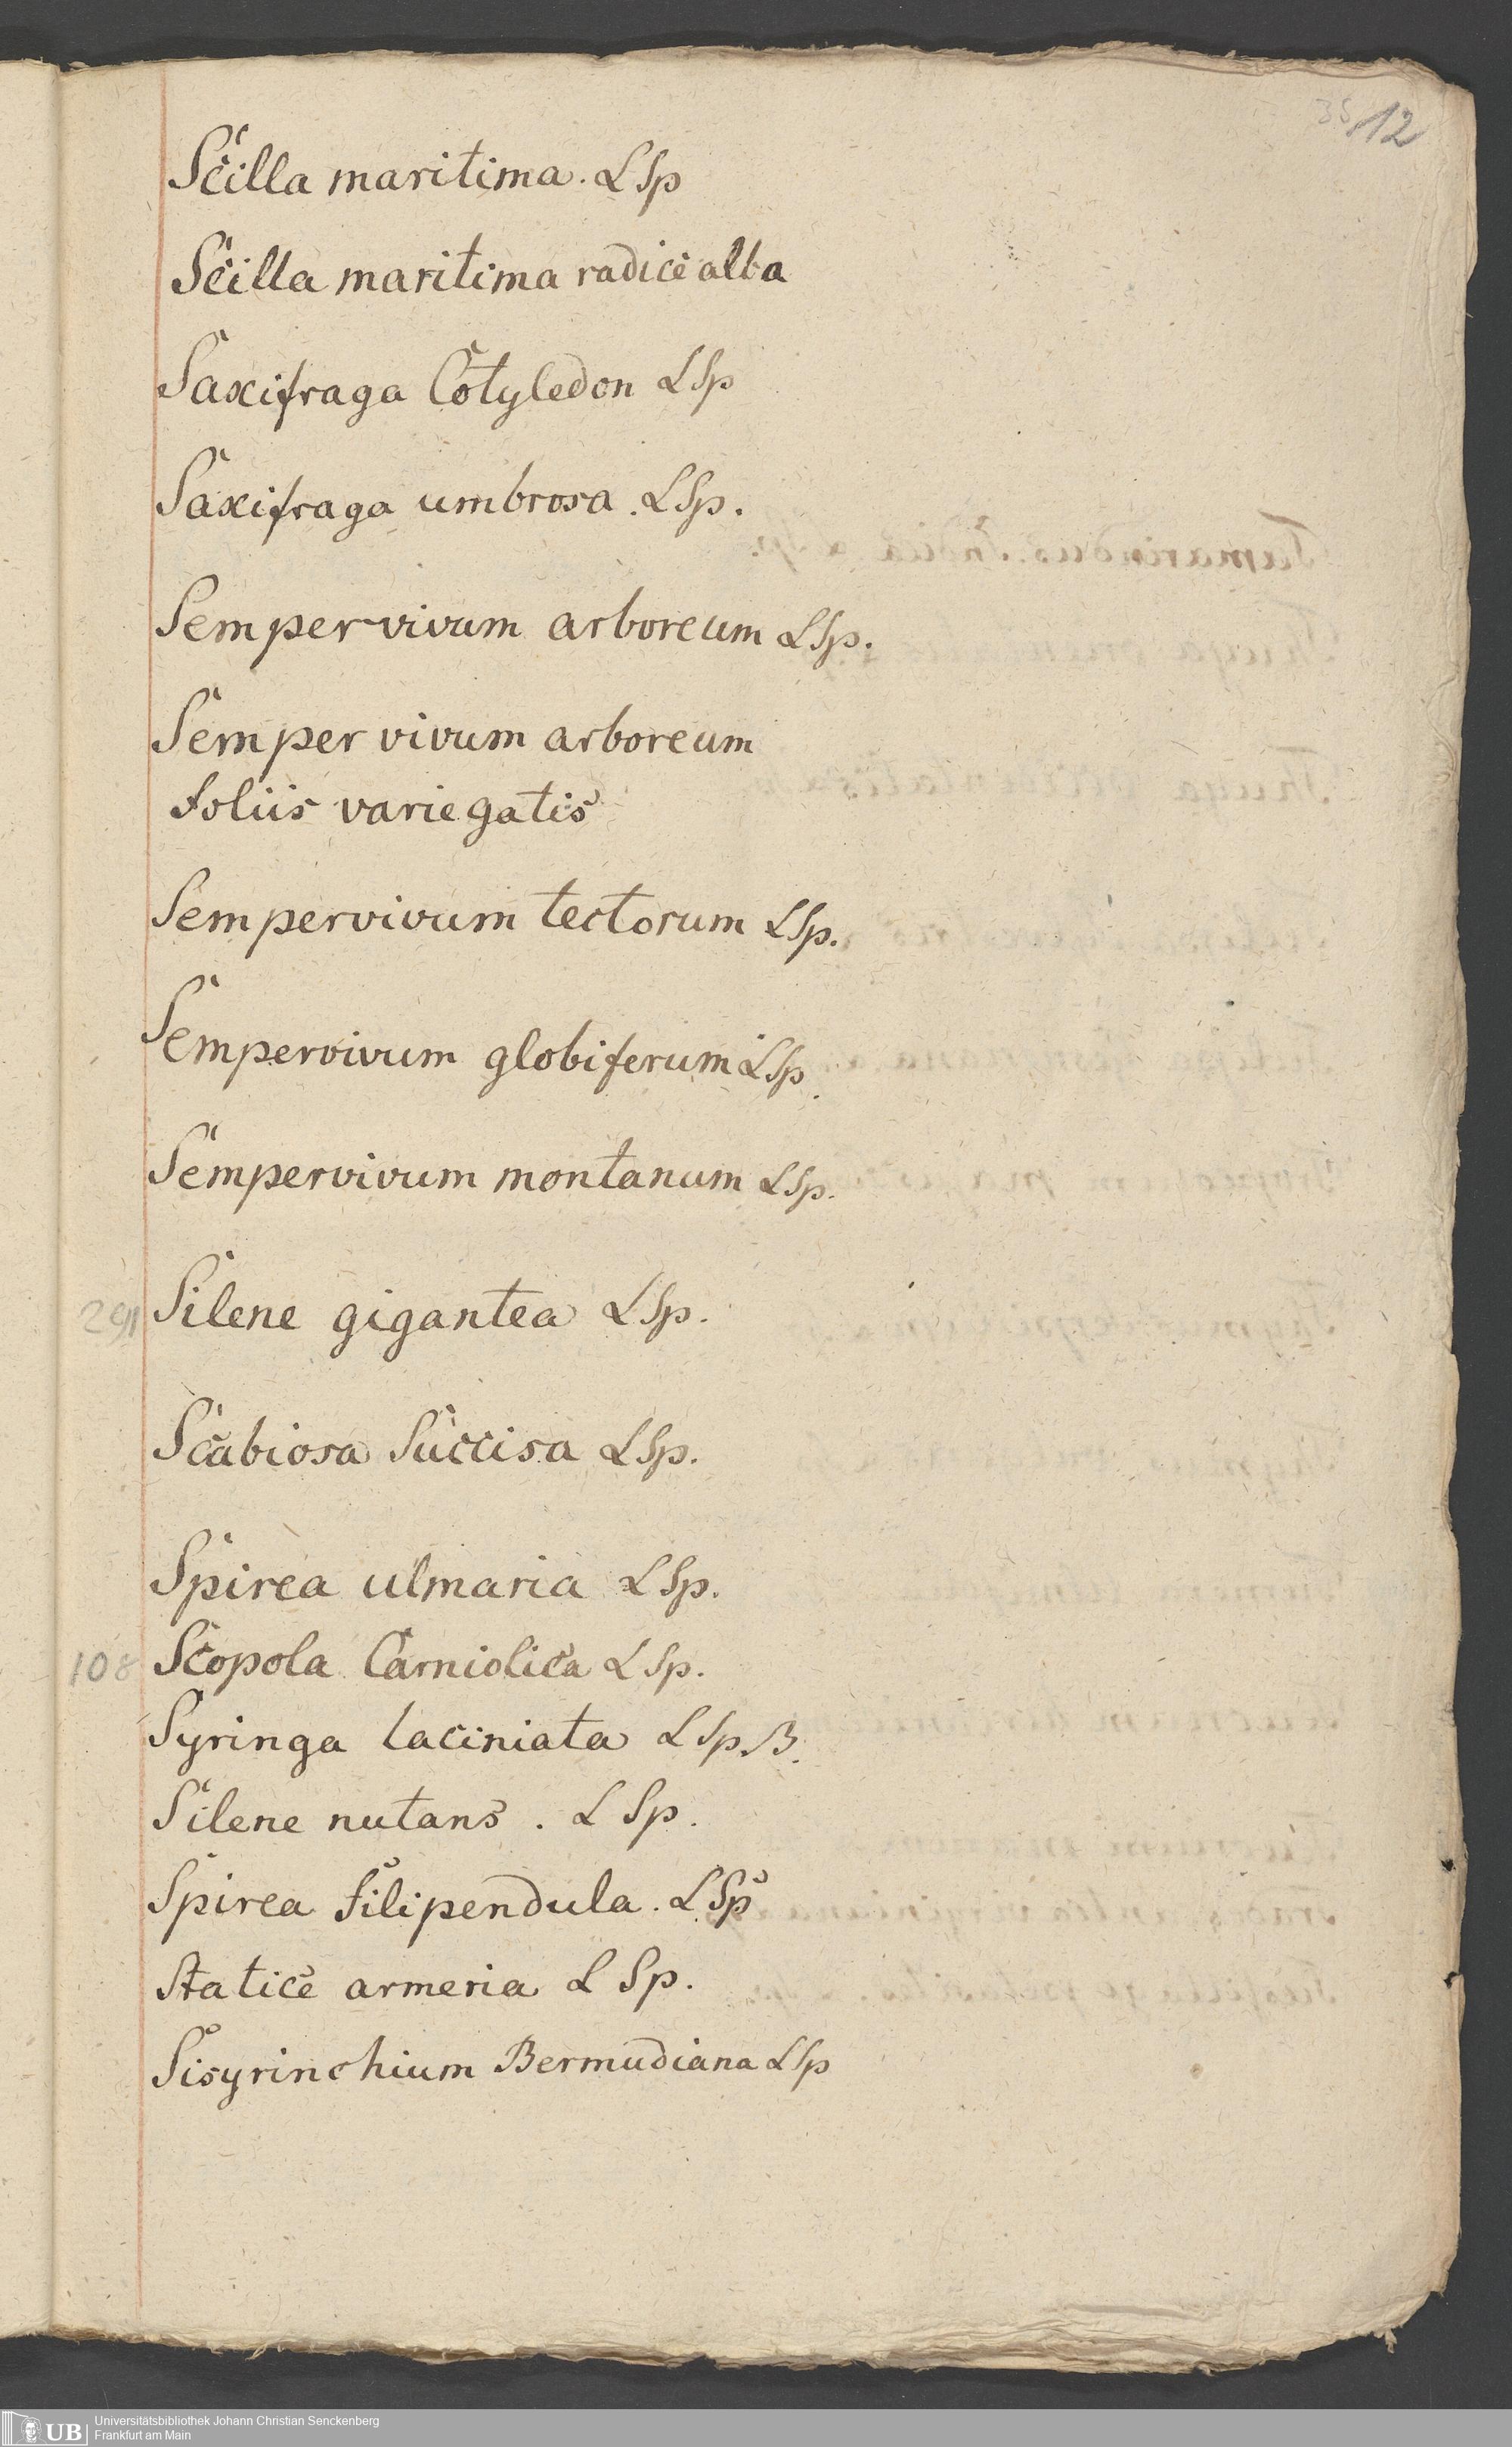 35 12
Scilla maritima. L Sp
Scilla maritima radice alba
Saxifraga Cotyledon L Sp
Saxifraga umbrosa. L Sp.
Sempervivum arboreum L Sp.
Semper vivum arboreum
foliis variegatis
Sempervivum tectorum L Sp.
Sempervivum globiferum L Sp.
Sempervivum montanum L Sp.
291 Silene gigantea L Sp.
Scabiosa Succisa L Sp.
Spirea ulmaria L Sp.
108 Scopola Carniolica L Sp.
Syringa laciniata L Sp. B.
Silene nutans. L Sp.
Spirea filipendula. L Sp
Statice armeria L Sp.
Sisyrinchium Bermudiana L Sp
UB
Universitätsbibliothek Johann Christian Senckenberg
Frankfurt am Main